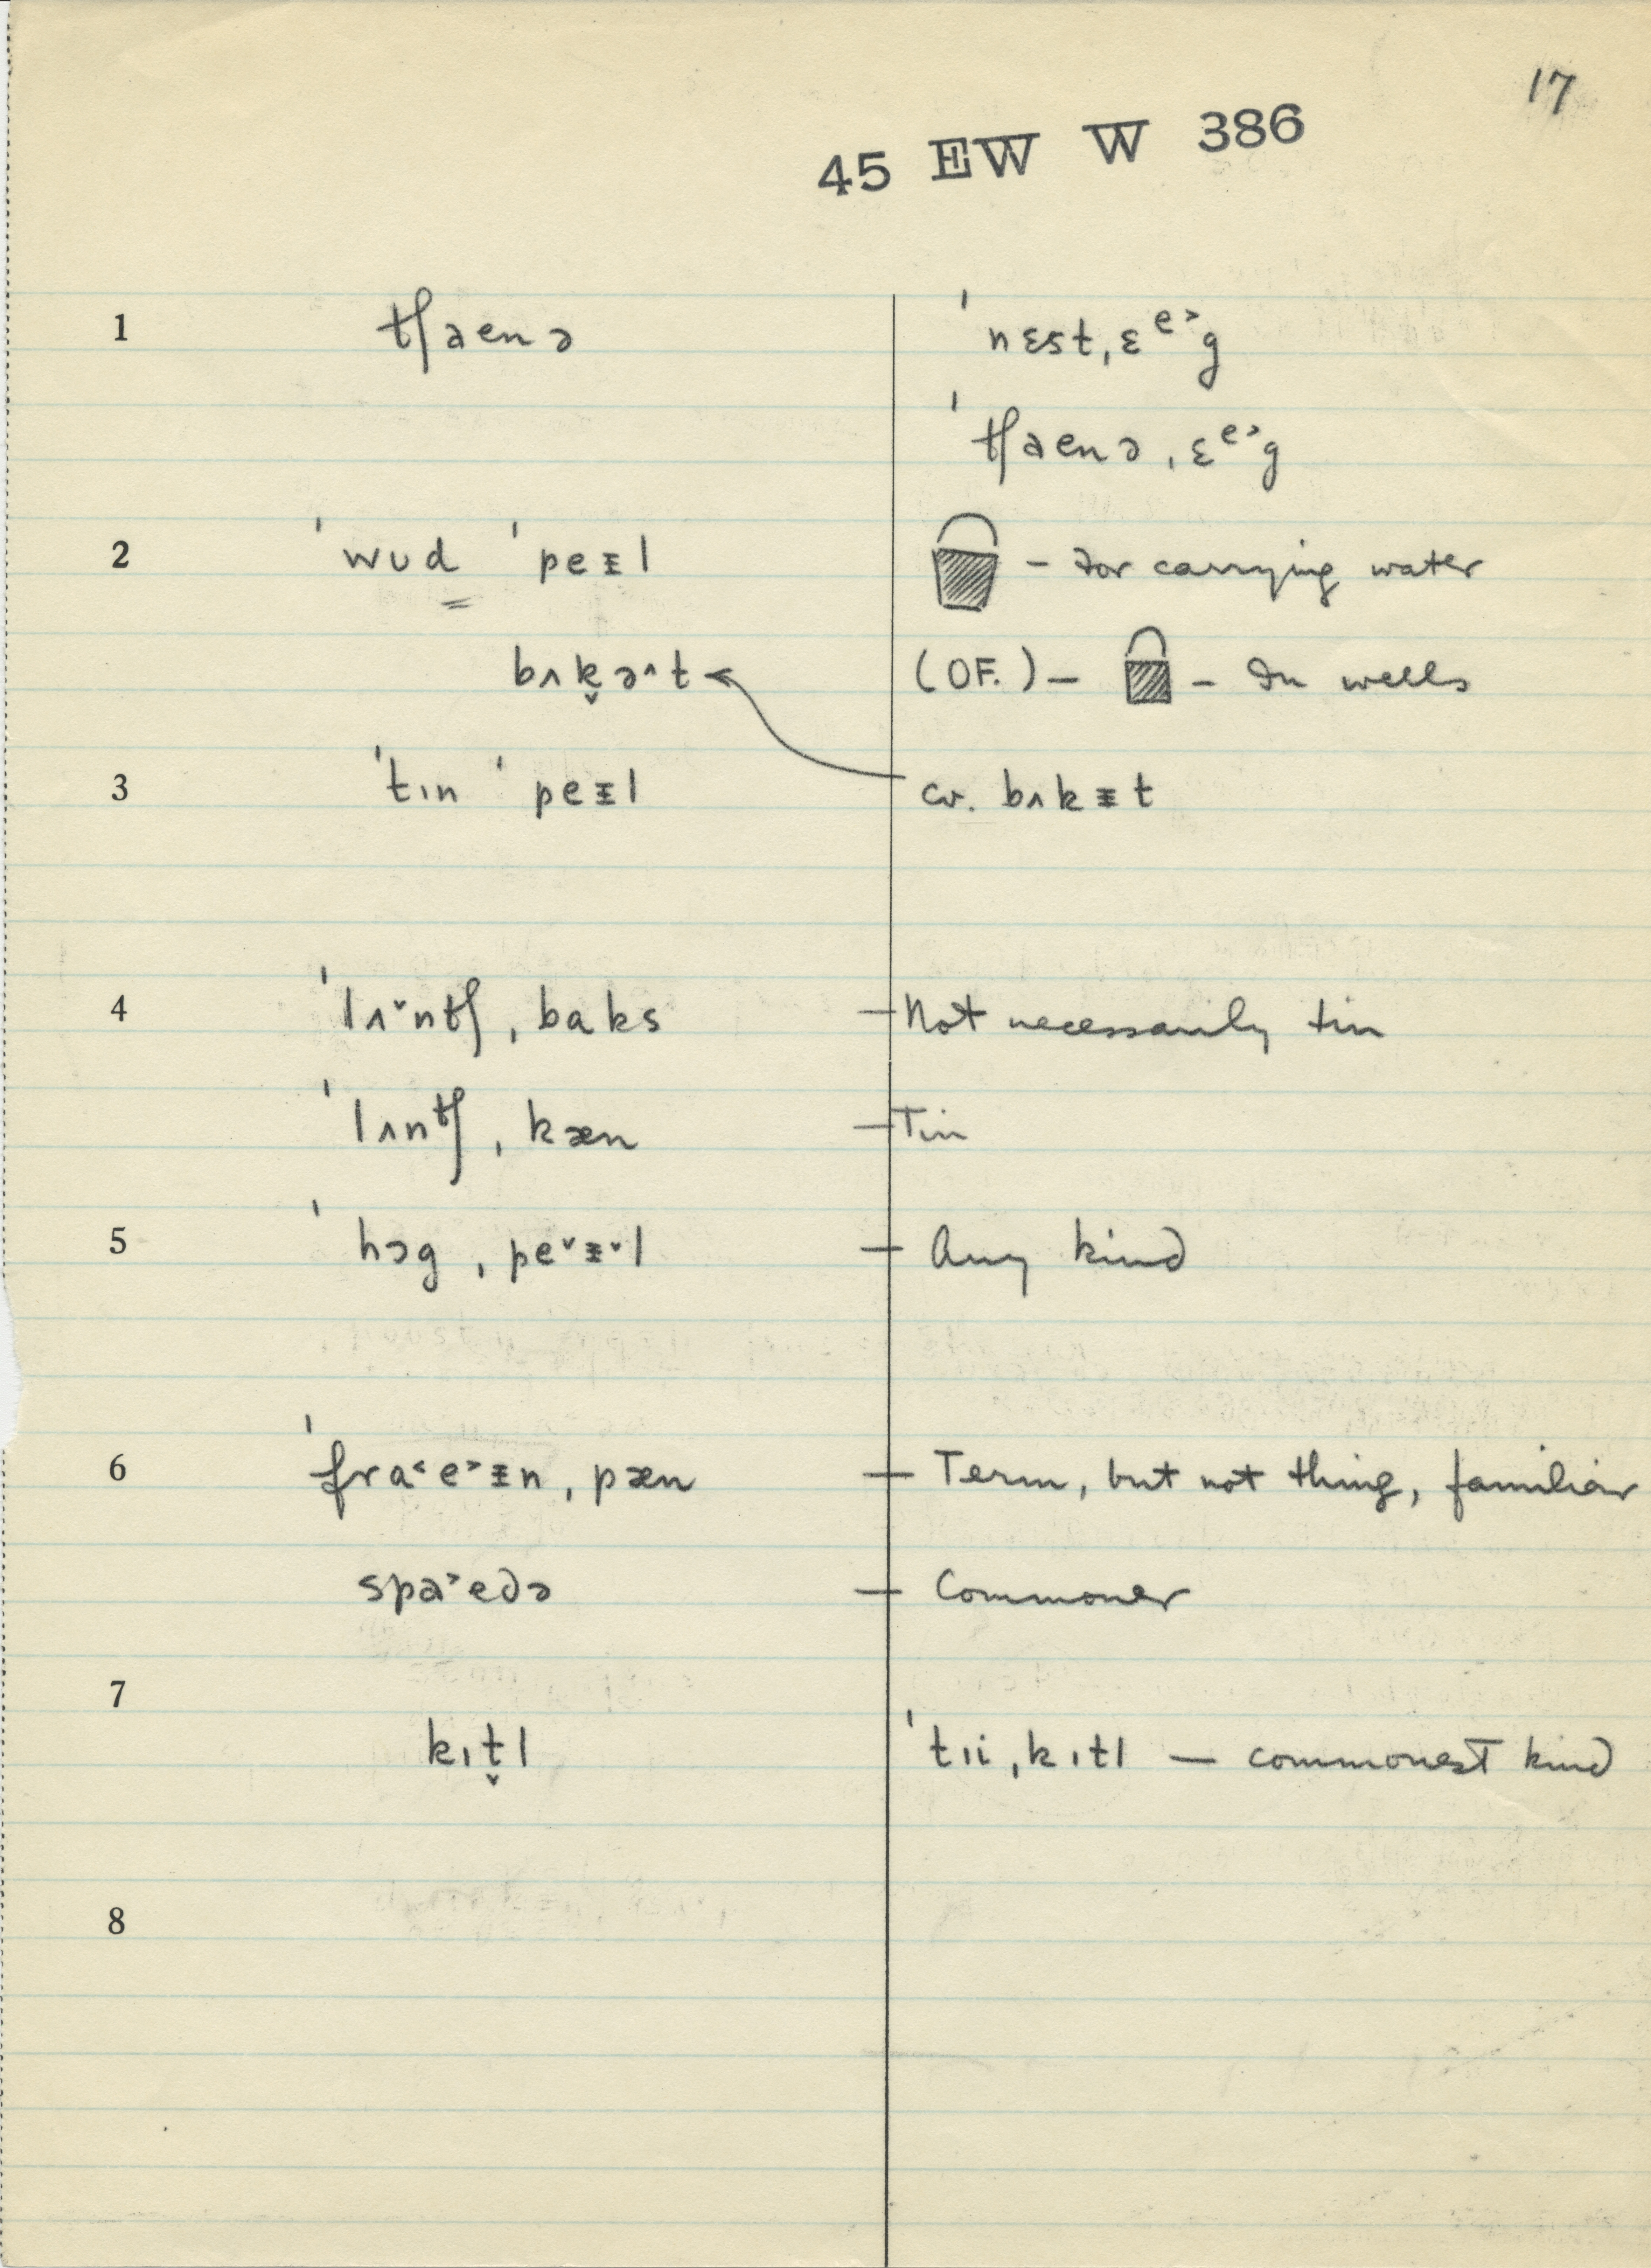 17
45 EW W 386
1 tʃaenə ˈnɛst ˌɛᵉ˃g
ˈtʃaenə ˌɛᵉ˃g
2 ˈwʊd ˈpeᵻl – for carrying water
bʌk̬ə˄t (OF.) – – In wells
3 ˈtɪn ˈpeᵻl cv. bʌkᵻt
4 ˈlʌ˅ntʃ ˌbaks – Not necessarily tin
ˈlʌntʃ ˌkæn – Tin
5 ˈhɔg ˌpe˅ᵻ˅l – Any kind
6 ˈfra˂e˃ᵻn ˌpæn – Term, but not thing, familiar
spa˃edə – Commoner
7
kɪt̬l ˈtɪi ˌkɪtl – commonest kind
8